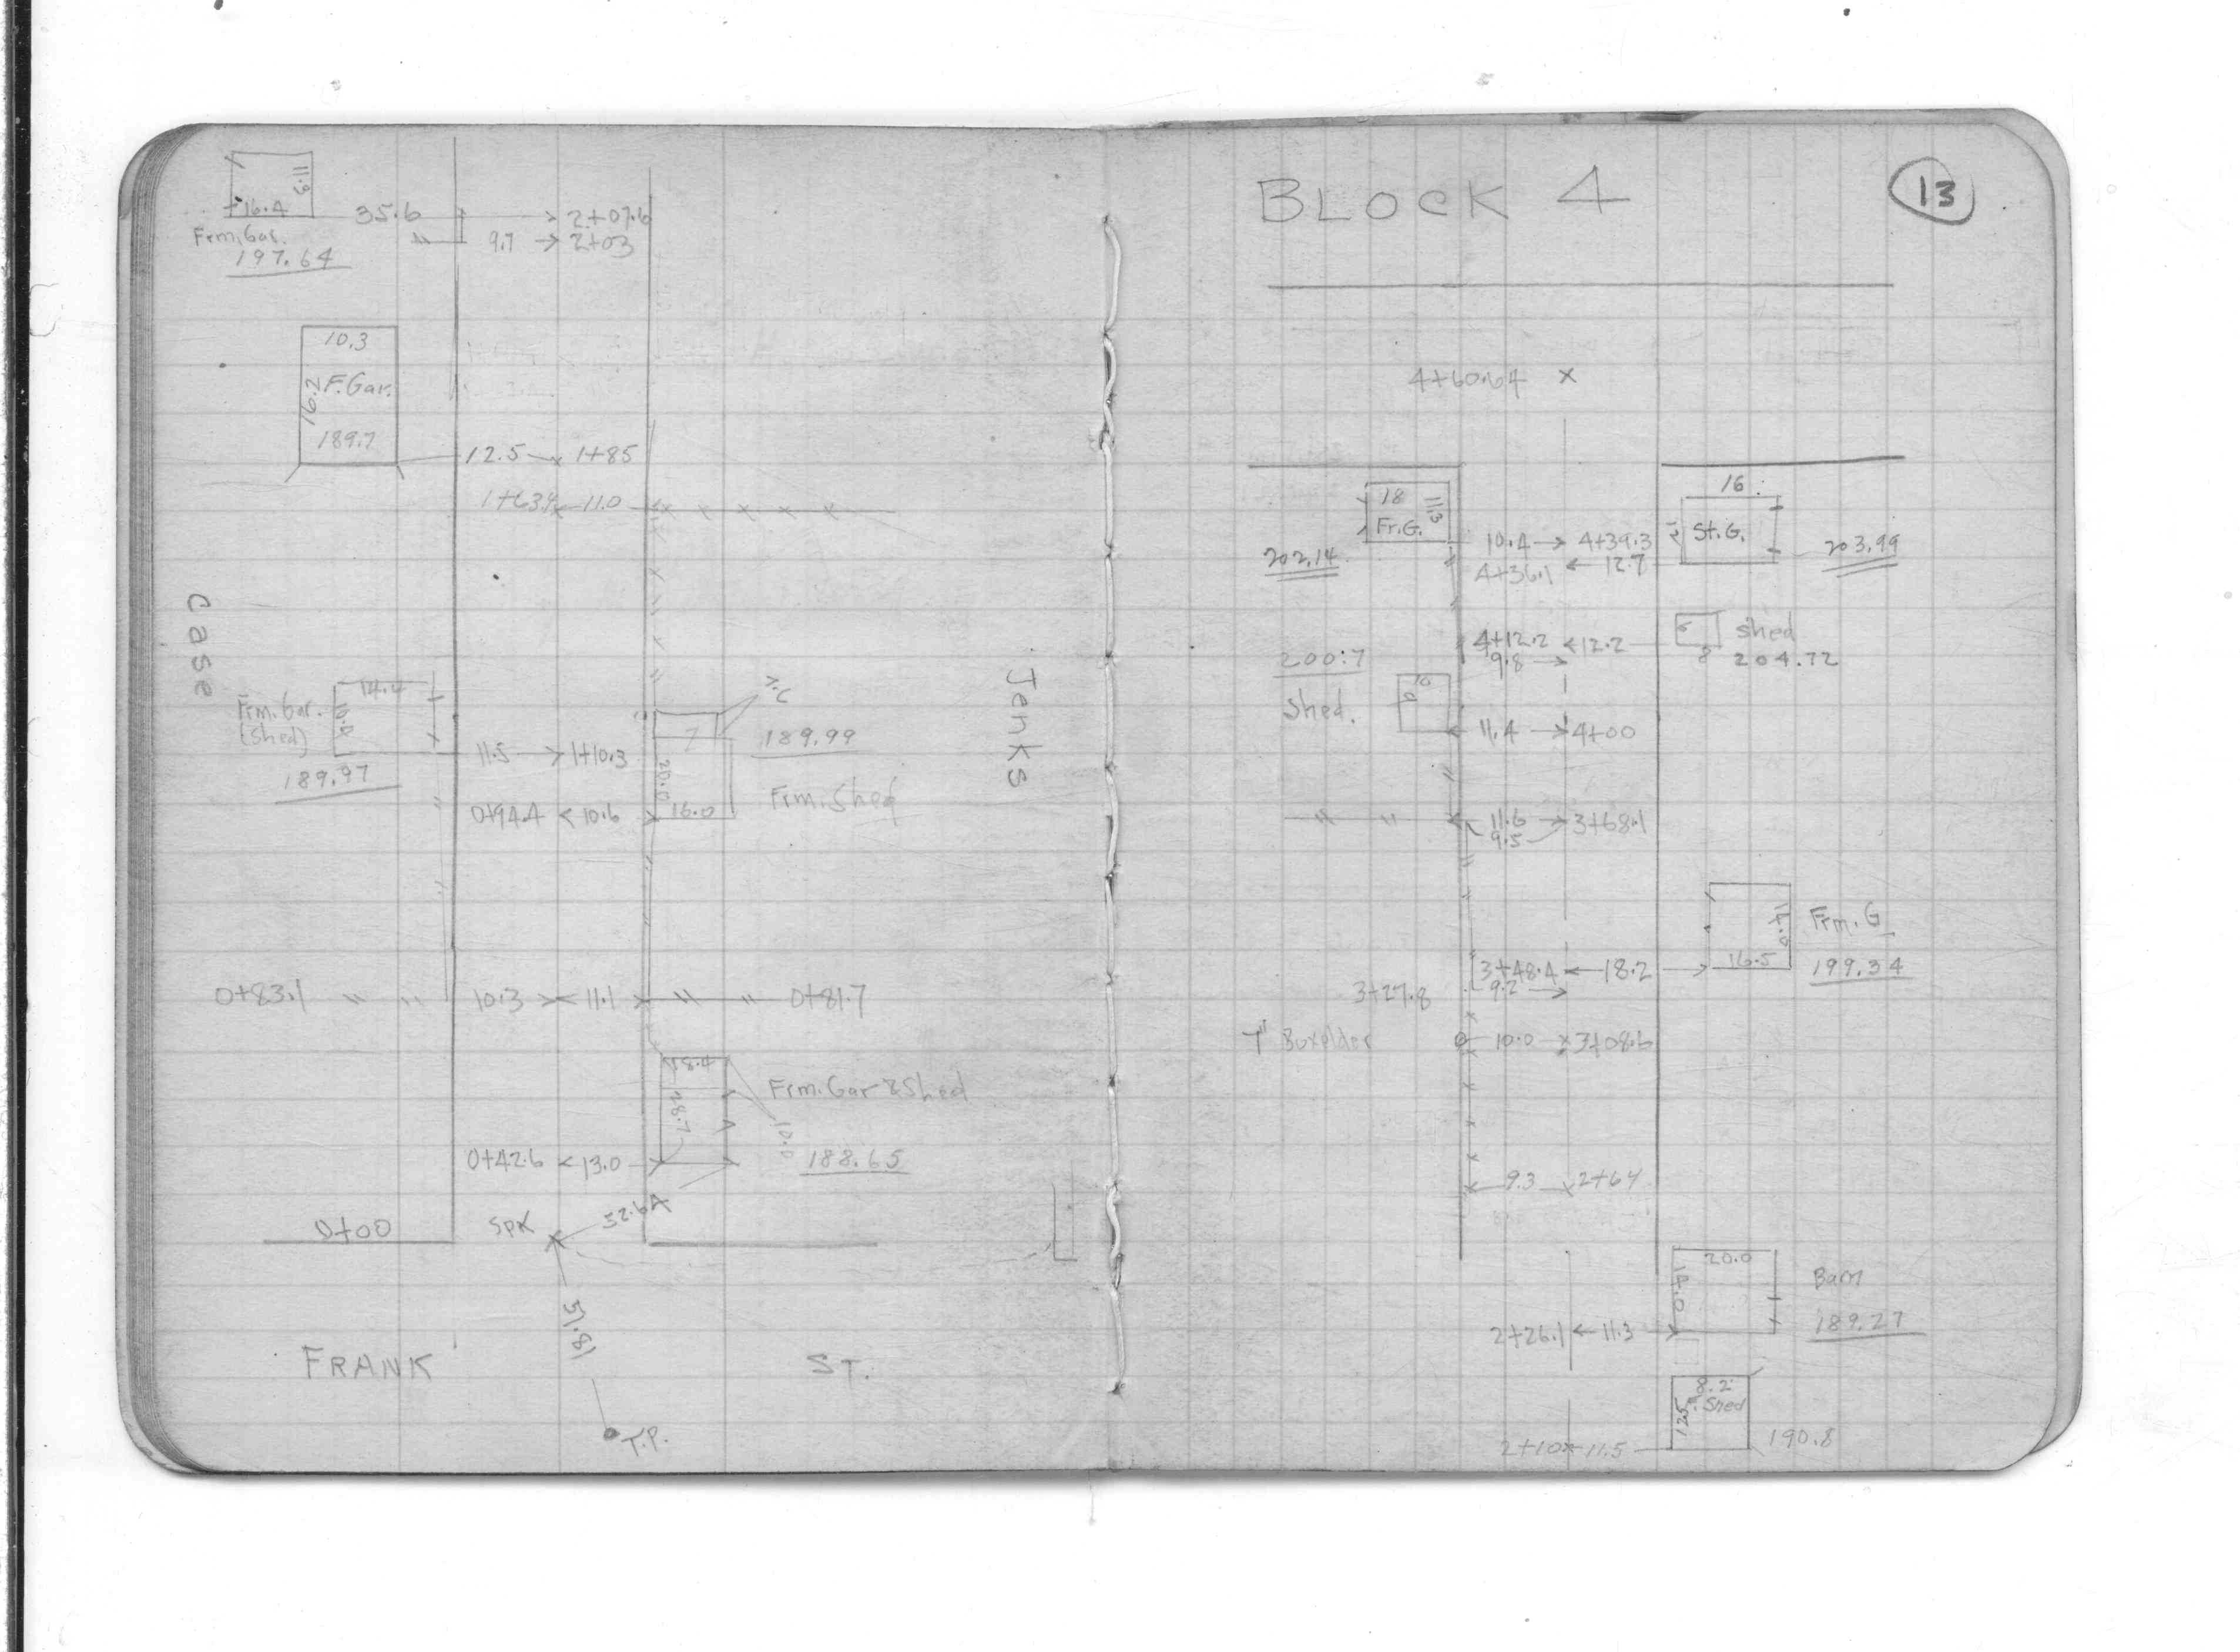 11.9
16.4
35.6 2+07.6
Frm. Gar.
" 9.7 2+03
197.64
10.3
16.2
F. Gar.
189.7
12.5 1+85
11.0
Case
Jenks
14.4
Frm. Gar.
(Shed)
189.97
11.5 1+10.3
7
189.99
20.0
Frm. Shed
0+94.4 10.6 16.0
0+83.1 " " 10.3 11.1 " " 0+81.7
18.4
28.7
Frm. Gar & Shed
10.0
0+42.6 13.0
188.65
0+00
SPK
52.64
51.81
FRANK ST.
T.P.
BLOCK 4
13
4+60.64
18
11.3
Fr.G.
202.14
16
12
St.G.
203.99
10.4 4+39.3
4+36.1 12.7
4+12.2 12.2
9.8
8
shed
204.72
200.7
Shed.
11.4 4+00
" " 11.6 3+68.1
9.5
14.0
16.5
Frm. G
199.34
3+48.4 18.2
9.2
3+27.8
Boxelder 10.0 3+08.6
9.3 2+64
20.0
14.0
Barn
189.27
2+26.1 11.3
8.2
12.5
Shed
2+10 11.5 190.8